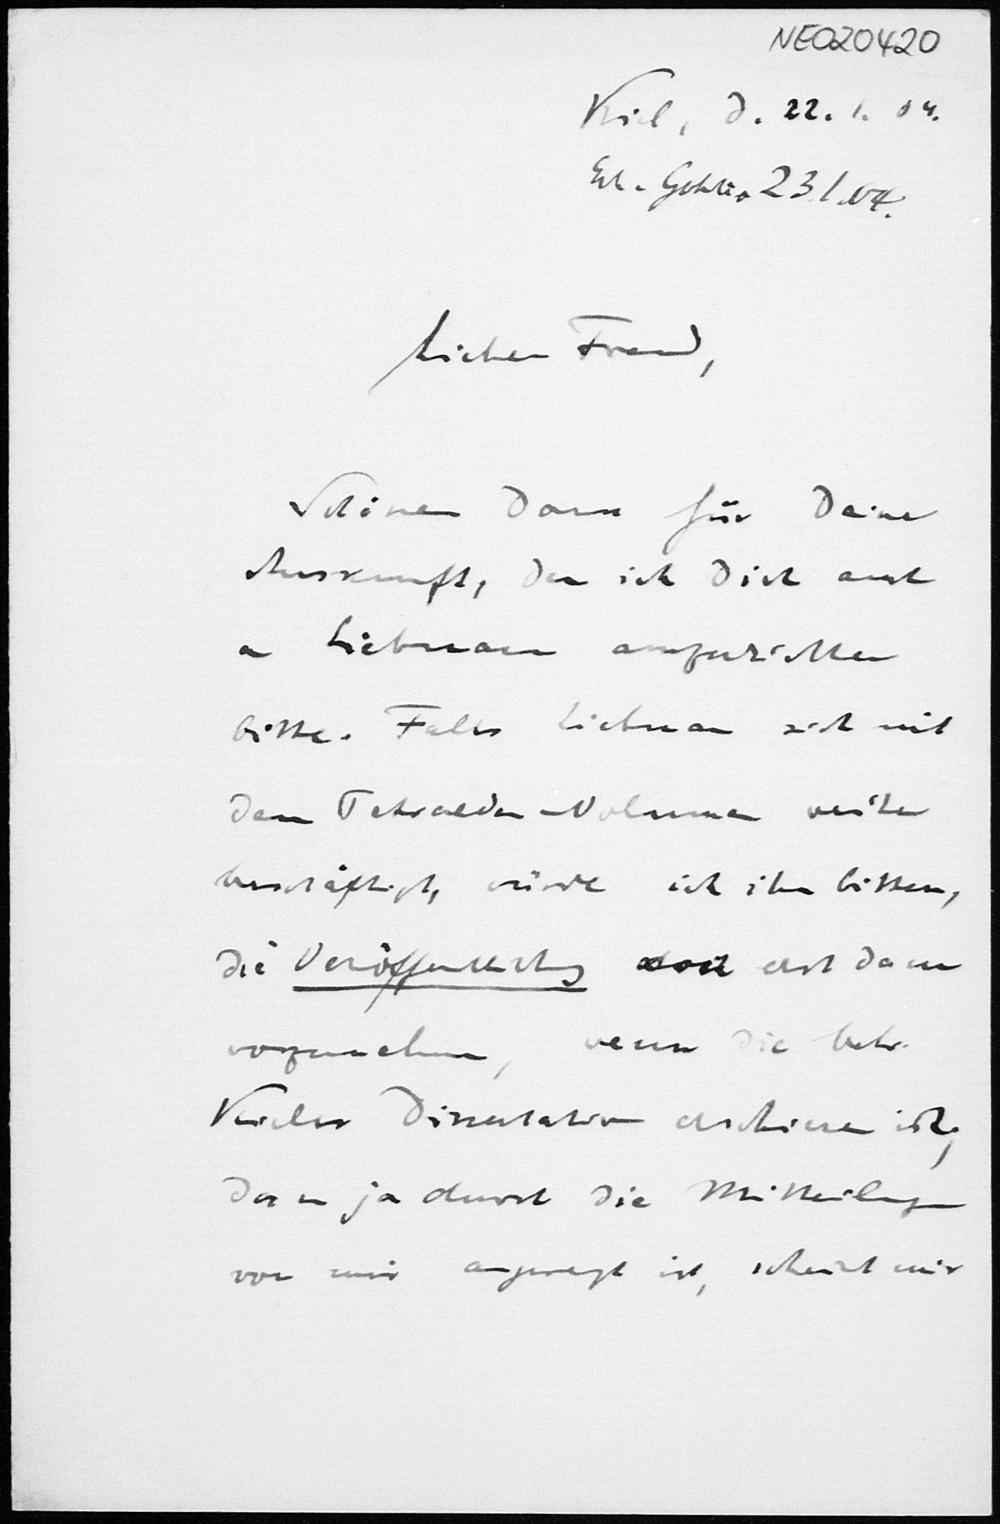 NEO20420
Kiel, d. 22. 1. 04.
Erh. Gohlis 23/1.04.
Lieber Freund,
Schönen Dank für Deine
Auskunft, den ich Dich auch
an Liebmann auszurichten
bitte. Falls Liebmann sich mit
dem Tetraeder-Volumen weiter
beschäftigt, würde ich ihn bitten,
die Veröffentlichung doch erst dann
vorzunehmen, wenn die betr.
Kieler Dissertation erschienen ist,
da er ja durch die Mitteilungen
von mir angeregt ist, scheint mir